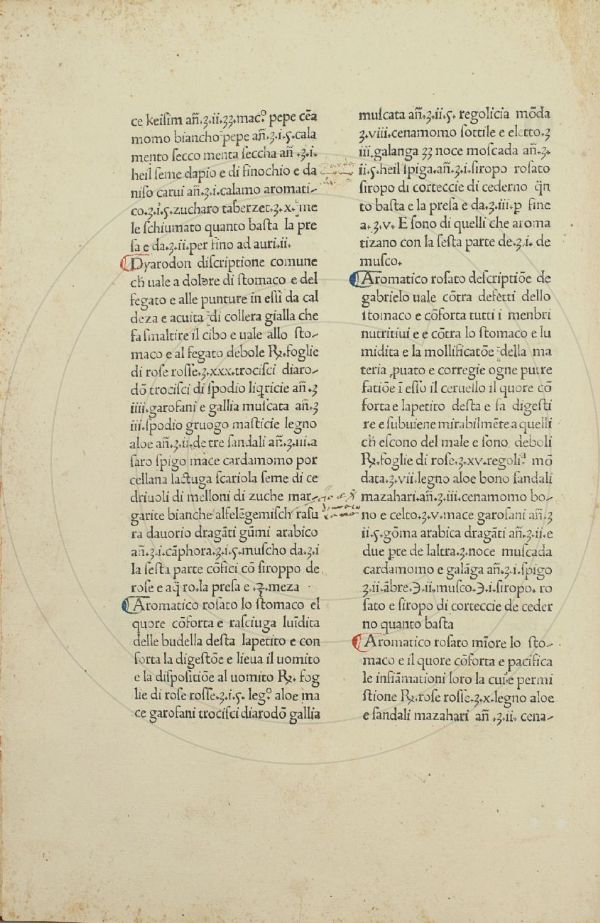 ce keisim añ.ʒ.ii.ʒʒ.mac.º pepe cēa
momo biancho pepe añ.ʒ.i.ς.cala
mento secco menta seccha añ.ʒ.i.
heil seme dapio e di finochio e da
niso carui añ.ʒ.i.calamo aromati-
co.ʒ.i.ς.zucharo taberzet.ʒ.x.me
le schiumato quanto basta la pre
sa e da.ʒ.ii.per fino ad auri.ii.
Dyarodon discriptione comune
ch uale a dolore di stomaco e del
fegato e alle punture in essi da cal
deza e acuita di collera gialla che
fa smaltire il cibo e uale allo sto-
maco e al fegato debole ℞. foglie
di rose rosse.ʒ.xxx.trocisci diaro-
dō trocisci di spodio liqricie añ.ʒ
iiii.garofani e gallia muscata añ.ʒ
iii.spodio gruogo masticie legno
aloe añ.ʒ.ii.de tre sandali añ.ʒ.iii.a
saro spigo mace cardamomo por
cellana lactuga scariola seme di ce
driuoli di melloni di zuche mar-
garite bianche alfelēgemisch rasu
ra dauorio dragāti gūmi arabico
añ.ʒ.i.cāphora.ʒ.i.ς.muscho da.ʒ.i
la sesta parte cōfici cō siroppo de
rose e aq̄ ro.la presa e .ʒ.meza
Aromatico rosato lo stomaco el
quore cōforta e rasciuga luīdita
delle budella desta lapetito e con
forta la digestōe e lieua il uomito
e la dispositiōe al uomito ℞. fog
lie di rose rosse.ʒ.i.ς.legº aloe ma
ce garofani trocisci diarodō gallia
muscata añ.ʒ.ii.ς. regolicia mōda
ʒ.viii.cenamomo sottile e eletto.ʒ
iii.galanga ʒʒ noce moscada añ.ʒ.
ii.ς.heil spiga.añ.ʒ.i.siropo rosato
siropo di corteccie di cederno q̄n
to basta e la presa e da.ʒ.iii.p fine
a.ʒ.v. E sono di quelli che aroma
tizano con la sesta parte de.ʒ.i. de
musco.
Aromatico rosato descriptiōe de
gabrielo uale cōtra defetti dello
stomaco e cōforta tutti i menbri
nutritiui e e cōtra lo stomaco e lu
midita e la mollificatōe della ma
teria puato e corregie ogne putre
fatiōe ī esso il ceruello il quore cō
forta e lapetito desta e fa digesti
re e subuiene mirabilmēte a quelli
ch escono del male e sono deboli
℞. foglie di rose.ʒ.xv.regoliª mō
data.ʒ.vii.legno aloe bono sandali
mazahari.añ.ʒ.iii.cenamomo bo-
no e celto.ʒ.v.mace garofani añ.ʒ
ii.ς.gōma arabica dragāti añ.ʒ.ii.e
due pte de laltra.ʒ.noce muscada
cardamomo e galāga añ.ʒ.i.spigo
ʒ.ii.ābre.℈.ii.musco.℈.i.siropo. ro
sato e siropo di corteccie de ceder
no quanto basta
Aromatico rosato mīore lo sto-
maco e il quore cōforta e pacifica
le infiāmationi loro la cui e permi
stione ℞. rose rosse.ʒ.x.legno aloe
e sandali mazahari añ .ʒ.ii. cena-